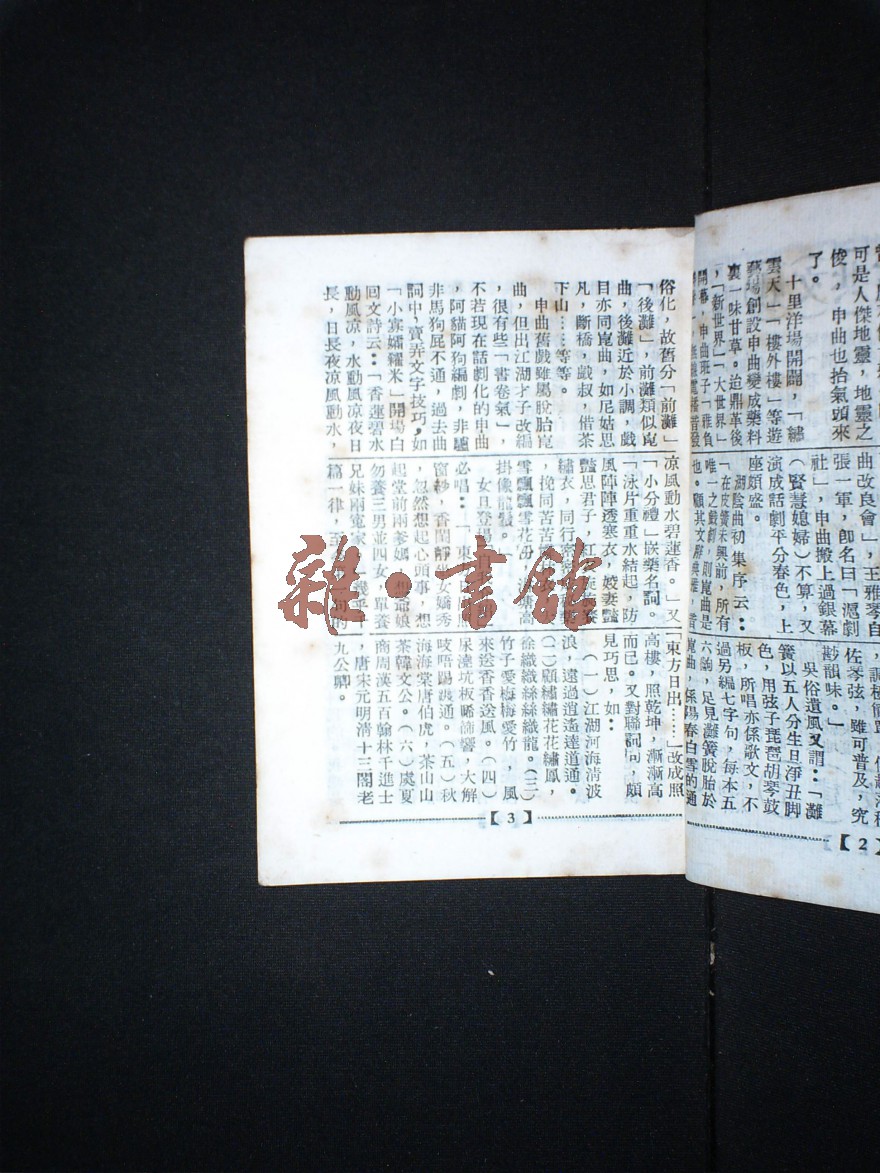 可是人傑地靈，地靈之
俊，申曲也抬氣頭來
了。
十里洋場開闢，「繡
雲天」「樓外樓」等遊
藝場創設申曲變成藥料
裏一味甘草。迨鼎革後
，「新世界」「大世界」
開幕，申曲班子「雅負
曲改良會」，王雅琴自
張一軍，卽名曰「滬劇
社」，申曲搬上過銀幕
（賢慧媳婦）不算，又
演成話劇平分春色，上
座頗盛。
湖陰曲初集序云：
「在皮簧未興前，所有
唯一之戲劇，則崑曲是
也。顧其文辭典雅，音
佐琴弦，雖可普及，究
尠韻味。」
吳俗遺風又謂：「灘
簧以五人分生旦淨丑脚
色，用弦子琵琶胡琴鼓
板，所唱亦係歌文，不
過另編七字句，每本五
六齣，足見灘簧脫胎於
崑曲，係陽春白雪的通
【2】
俗化，故舊分「前灘」
「後灘」，前灘類似崑
曲，後灘近於小調，戲
目亦同崑曲，如尼姑思
凡，斷橋，戲叔，借茶
下山……等等。
申曲舊戲雖屬脫胎崑
曲，但出江湖才子改編
，很有些「書卷氣」，
不若現在話劇化的申曲
，阿貓阿狗編劇，非驢
非馬狗屁不通，過去曲
詞中，賣弄文字技巧，如
「小寡孀糶米」開場白
回文詩云：「香蓮碧水
動風凉，水動風凉夜日
長，日長夜凉風動水，
凉風動水碧蓮香。」又
「小分禮」嵌藥名詞。
「泳片重重水結起，防
風陣陣透寒衣，姣妻豔
豔思君子，紅
繡衣，同行密密
，挽同苦苦
雪飄飄雪花粉，塘高
掛像龍鬚。」
女旦登場
必唱：「東
窗紗，香閨靜坐女嬌秀
，忽然想起心頭事，想
起堂前兩爹媽，想爺娘
勿養三男並四女，單養
兄妹兩寃家，」幾乎千
篇一律，
「東方日出……」改成照
高樓，照乾坤，漸漸高
而已。又對聯詞句，頗
見巧思，如：
（一）江湖河海淸波
浪，遠過逍遙達道通。
（二）顧繡繡花花繡鳳，
徐織織絲絲織龍。（三）
竹子愛梅梅愛竹，風
來送香香送風。（四）
尿澆坑板晞㴋響，大解
吱唔踢渡通。（五）秋
海海棠唐伯虎，茶山山
茶韓文公。（六）虞夏
商周漢五百翰林千進士
，唐宋元明淸十三閣老
九公卿。
【3】
雜·書館